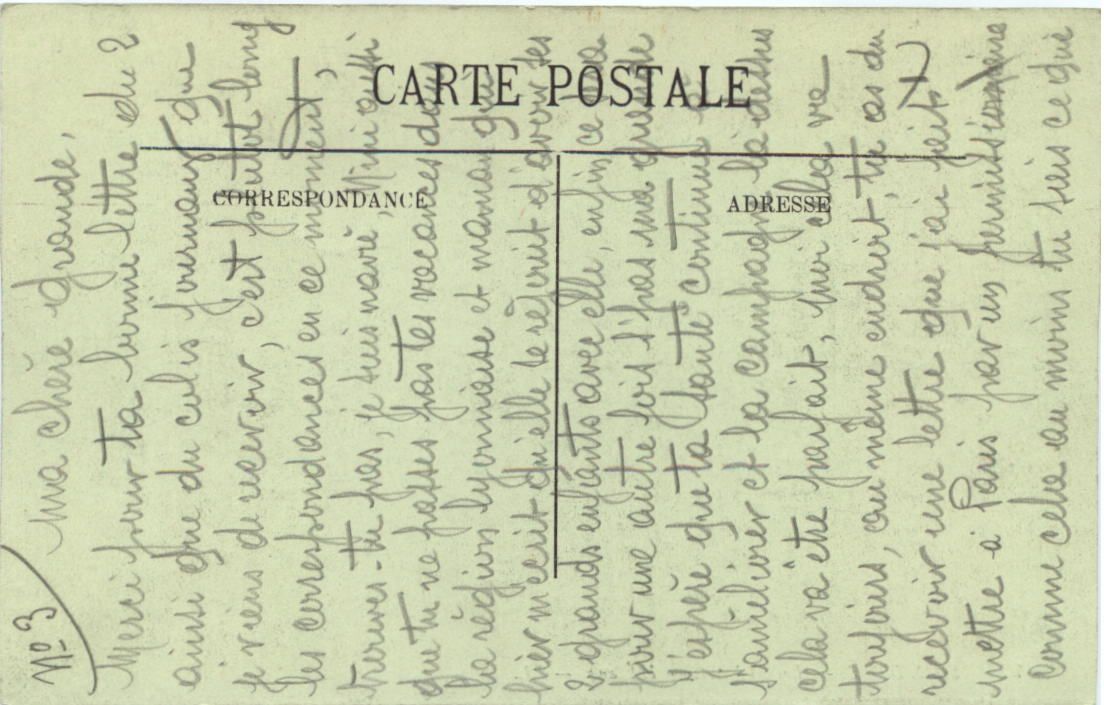 CARTE POSTALE
CORRESPONDANCE
ADRESSE
Nº 3
7
Ma chère grande,
Merci pour ta bonne lettre du 2
ainsi que du colis journaux que
je viens de recevoir, c'est long
les correspondances en ce moment,
trouves-tu pas, je suis navré aussi
que tu ne passes pas tes vacances dans
la région lyonnaise et maman qui
hier m'écrit qu'elle se réjouit d'avoir ses
2 grands enfants avec elle, enfin ce sera
pour une autre fois n'est pas ma grande
J'espère que ta santé continue de
s'améliorer et la campagne là dessus
cela va être parfait, moi cela va
toujours, au même endroit, tu as du
recevoir une lettre que j'ai fait
mettre à Paris par un permissionnaire
comme cela au moins tu sais ce que